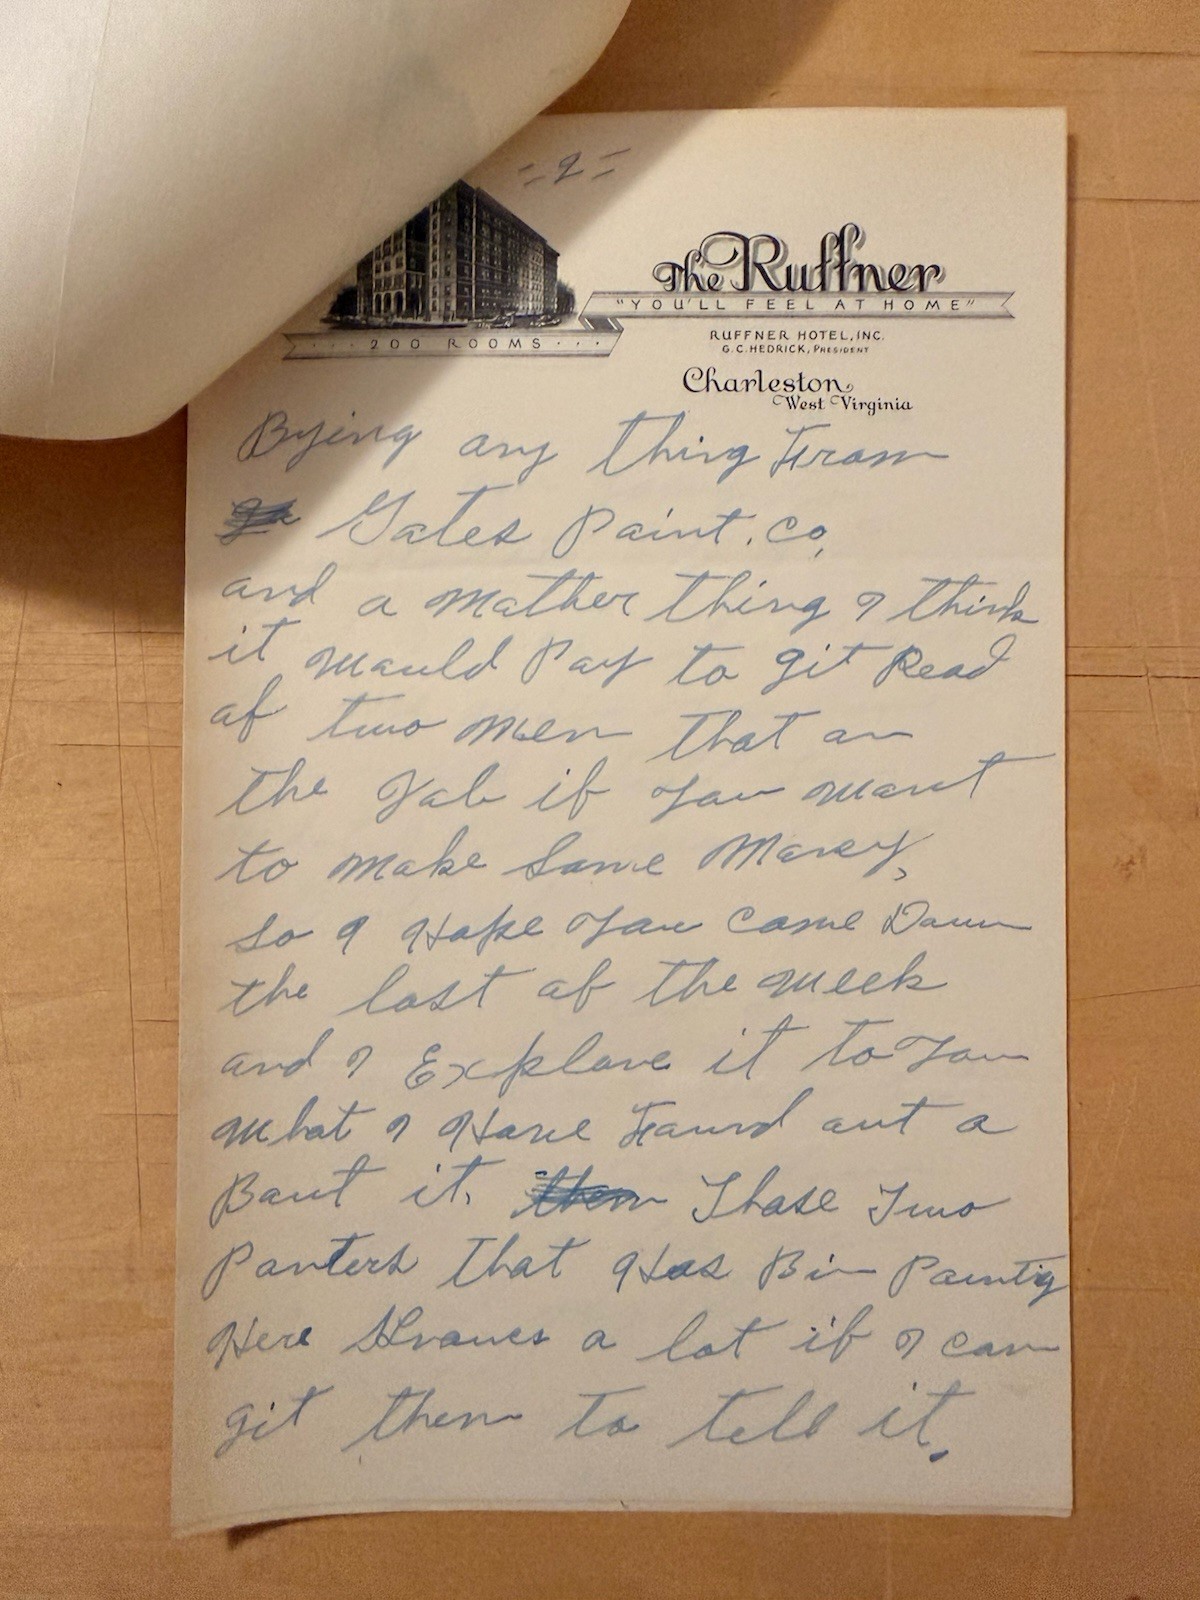 = 2 =
The Ruffner
"YOU'LL FEEL AT HOME"
··· 200 ROOMS ···
RUFFNER HOTEL, INC.
G. C. HEDRICK, PRESIDENT
Charleston,
West Virginia
Bying any thing From
Gates Paint. Co,
and a nother thing I think
it would Pay to git Read
of two men that on
the Job if you want
to make some Money,
so I Hope you come Down
the last of the week
and I Explane it to you
what I Have Found out a
Bout it. Those Two
Panters that Has Bin Paintig
Here Knows a lot if I can
git them to tell it.